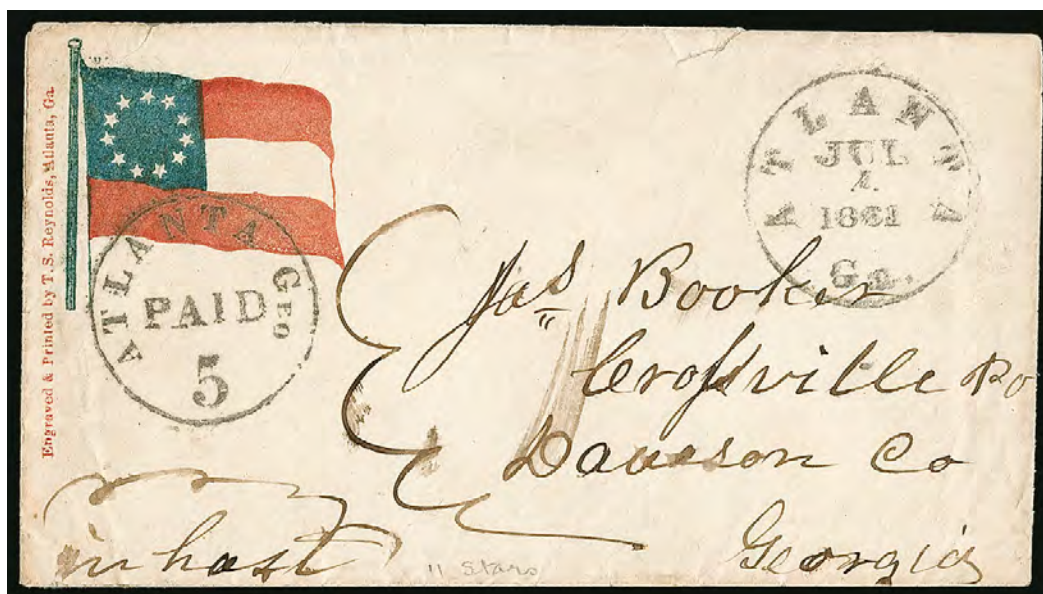 Engraved & Printed by T. S. Reynolds, Atlanta, Ga.
ATLANTA GEO
PAID
5
ATLANTA
JUL
4
1861
Ga.
Jas Booker
Crossville Po
Dawson Co
Georgia
in hast
11 Stars